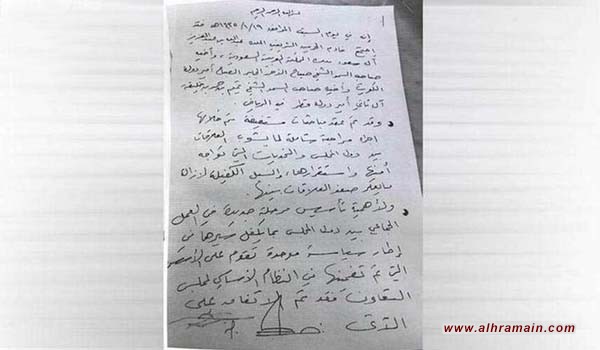 بسم الله الرحمن الرحيم
إنه في يوم السبت الموافق ١٤٣٥/١/١٩هـ فقد
اجتمع خادم الحرمين الشريفين الملك عبدالله بن عبدالعزيز
آل سعود ملك المملكة العربية السعودية، وأخيه
صاحب السمو الشيخ صباح الأحمد الجابر الصباح أمير دولة
الكويت وأخيه صاحب السمو الشيخ تميم بن حمد بن خليفة
آل ثاني أمير دولة قطر في الرياض.
وقد تم عقد مباحثات مستفيضة تم خلالها
اجراء مراجعة شاملة لما يشوب العلاقات
بين دول المجلس والتحديات التي تواجه
أمنها واستقرارها، والسبل الكفيلة لإزالة
مايعكر صفو العلاقات بينها.
ولأهمية تأسيس مرحلة جديدة في العمل
الجماعي بين دول المجلس بما يكفل سيرها في
إطار سياسة موحدة تقوم على الأسس
التي تم تضمينها في النظام الأساسي لمجلس
التعاون فقد تم الاتفاق على
الآتي
www.alhramain.com